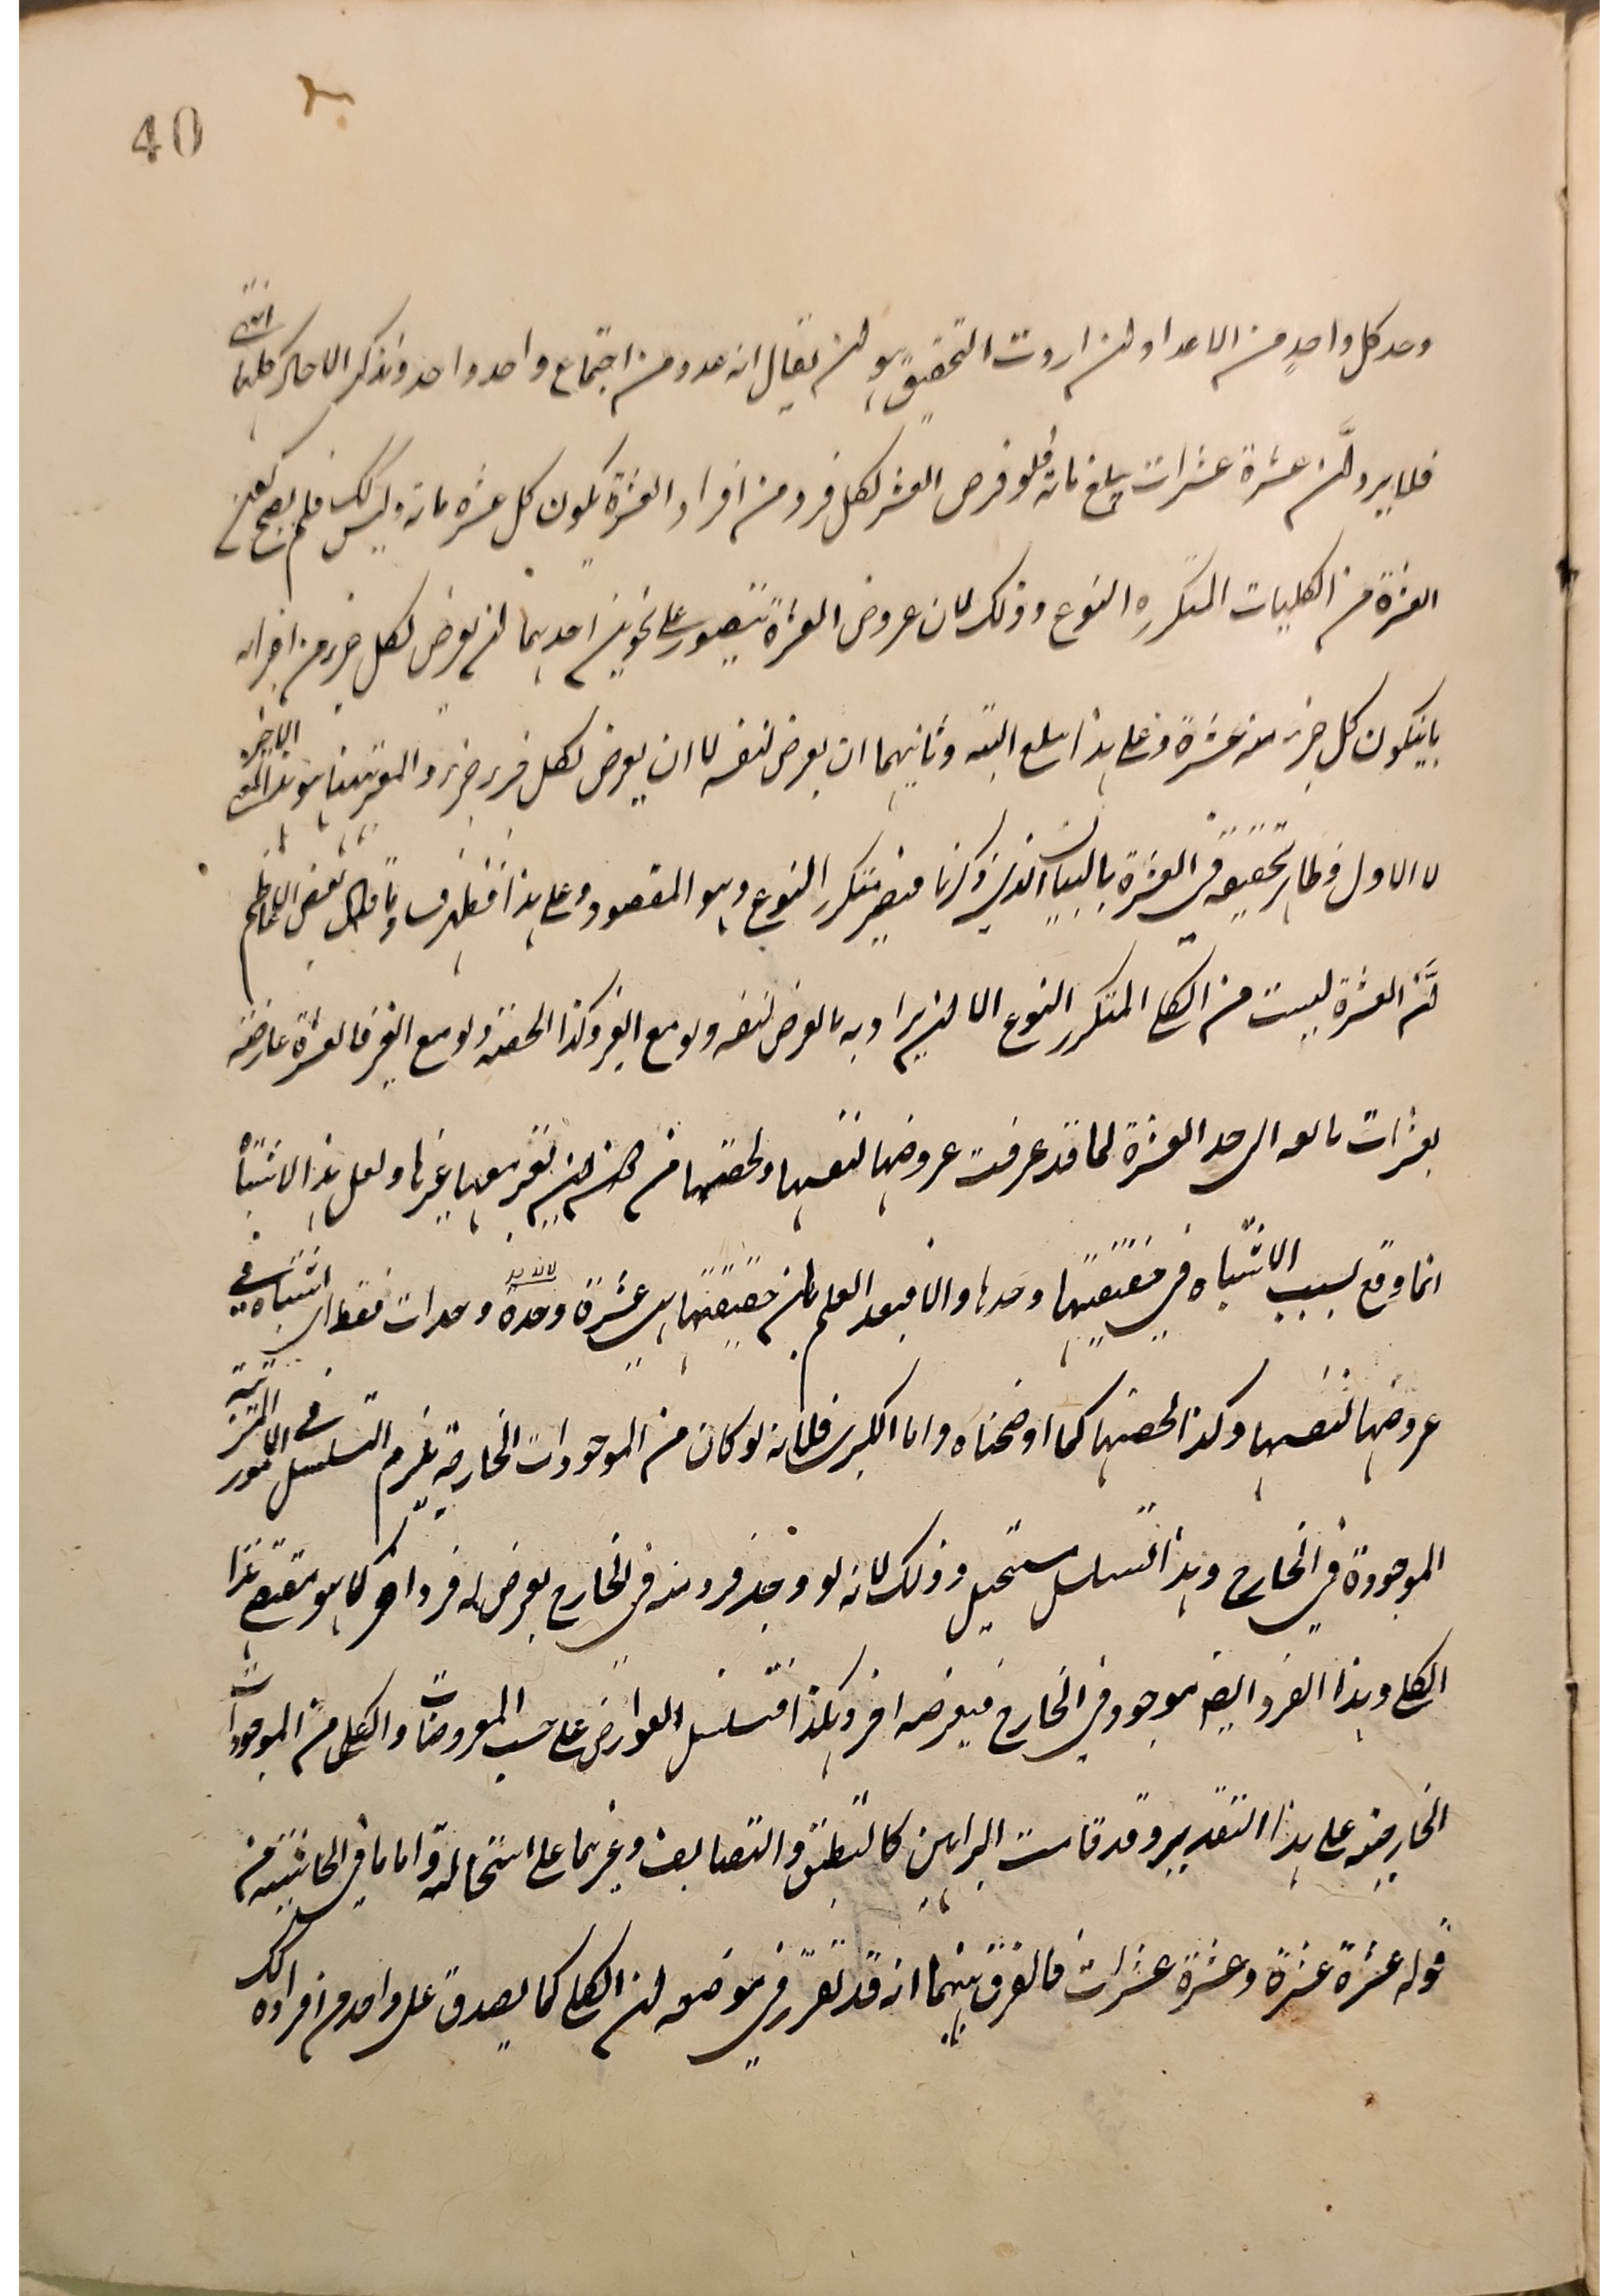 40
وحد كل واحد من الاعداد ولئن اردت التحقيق هو ان يقال انه عدد من اجتماع واحد وواحد وتذكر الاحاد كلها انتهى
فلا يرد ان عشرة عشرات يبلغ مائة فلو فرض العشر لكل فرد من افراد العشرة يكون كل عشرة مائة وليس كذلك فلم يصح
العشرة من الكليات المتكررة النوع وذلك لان عروض العشرة يتصور على نحوين احدهما ان يعرض لكل جزء من اجزائه
بان يكون كل جزء منه عشرة وعلى هذا يبلغ البتة وثانيهما ان يعرض لنفسه لا ان يعرض لكل فرد جزء والمعتبر ههنا هو هذا المعنى الاخير
لا الاول فظاهر تحققه في العشرة بالبيان الذي ذكرنا فيصير متكرر النوع وهو المقصود وعلى هذا فظهر فساد ما قال بعض الاعاظم
ان العشرة ليست من الكلي المتكرر النوع الا ان يراد به ما يعرض لنفسه ولو مع الغير وكذا لحصته ولو مع الغير فالعشرة عارضة
بعشرات بالغة الى حد العشرة لما قد عرفت عروضها لنفسها ولحصتها من دون ان يعتبر معها غيرها ولعل هذا الاشتباه
انما وقع بسبب الاشتباه في حقيقتها وحدها والا فبعد العلم بان حقيقتها هي عشرة وحدة وحدات فقط اي اشتباه في
عروضها لنفسها وكذا لحصتها كما اوضحناه واما الكبرى فلانه لو كان من الموجودات الخارجية يلزم التسلسل في الامور المترتبة
الموجودة في الخارج وهذا التسلسل مستحيل وذلك لانه لو وجد فرد منه في الخارج يعرض له فرد اخر كما هو مقتضى هذا
الكلي وهذا الفرد ايضا موجود في الخارج فيعرضه اخر وهكذا فتسلسل العوارض على حسب المعروضات والكلي من الموجودات
الخارجية على هذا التقدير وقد قامت البراهين كالتطبيق والتضايف وغيرهما على استحالته واما ما في الحاشية من
قوله عشرة عشرة وعشرة عشرات فالفرق بينهما انه قد تقرر في موضعه ان الكلي كما يصدق على واحد من افراده كذلك